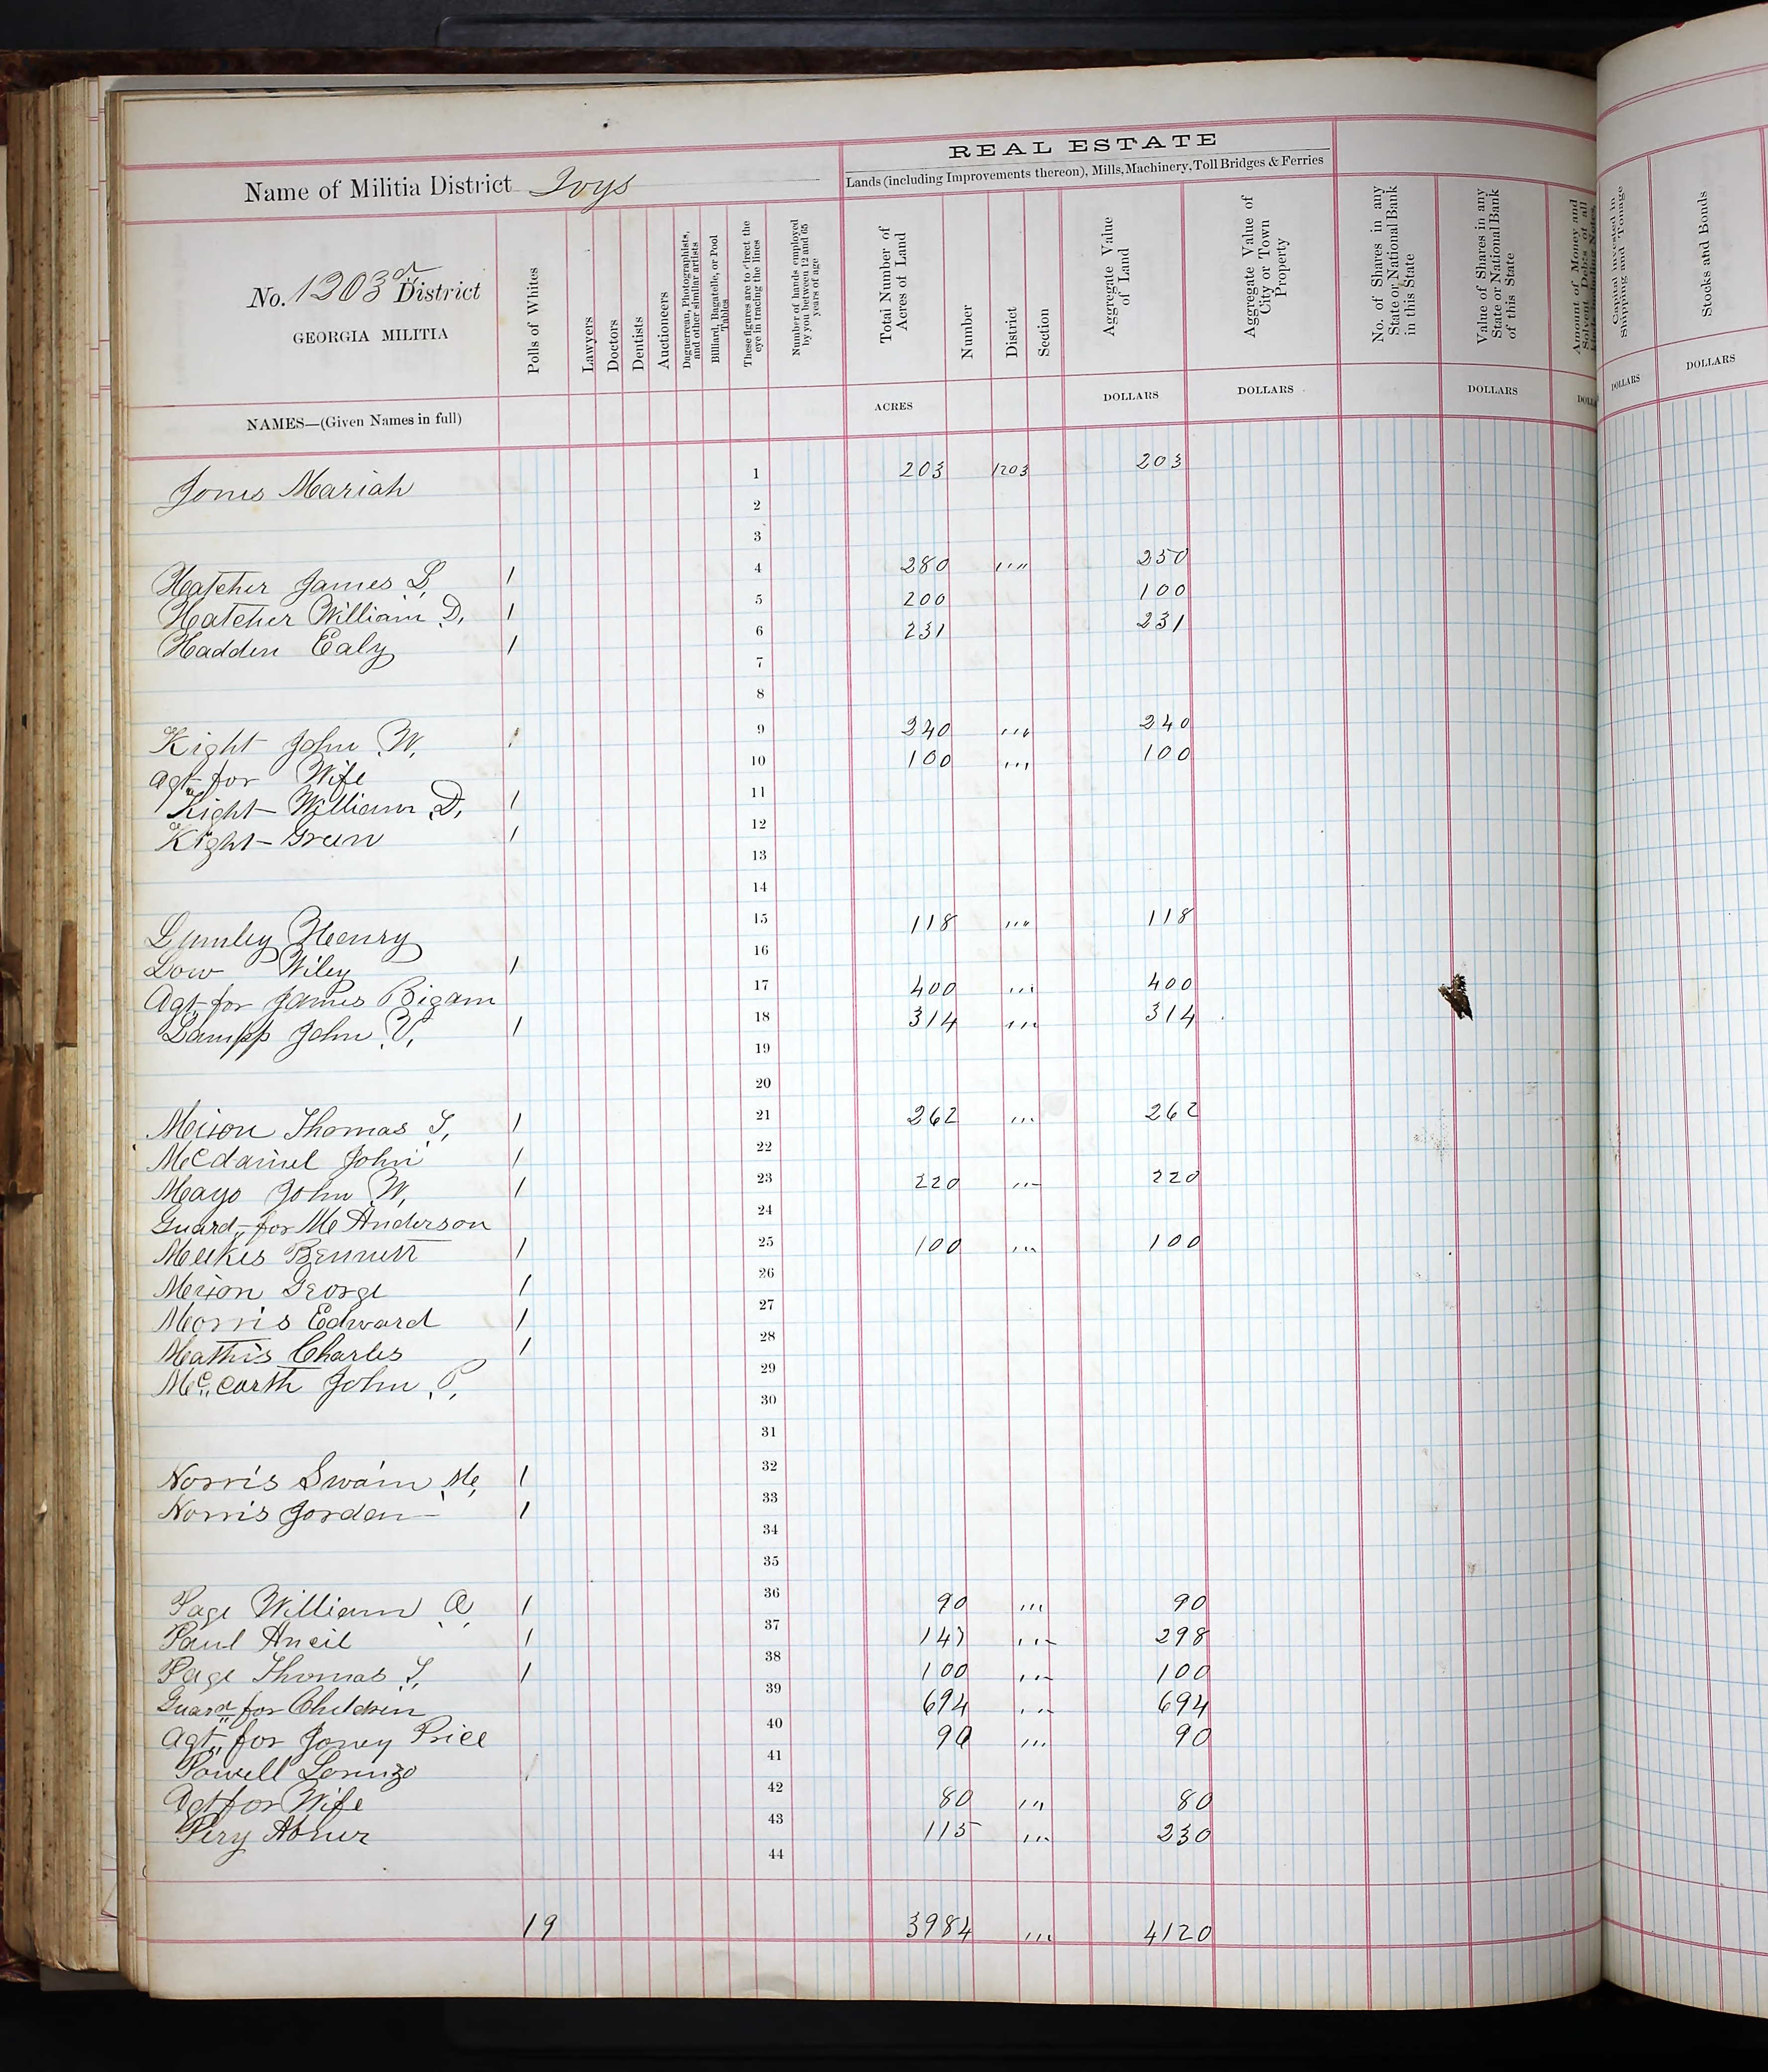 REAL ESTATE
Name of Militia District Ivys
Lands (including Improvements thereon), Mills, Machinery, Toll Bridges & Ferries
No. 1203 District
GEORGIA MILITIA
NAMES—(Given Names in full)
Polls of Whites
Lawyers
Doctors
Dentists
Auctioneers
Daguerrean, Photographists, and other similar artists
Billiard, Bagatelle, or Pool Tables
These figures are to direct the eye in tracing the lines
Number of hands employed by you between 12 and 65 years of age
Total Number of Acres of Land
ACRES
Number
District
Section
Aggregate Value of Land
DOLLARS
Aggregate Value of City or Town Property
DOLLARS
No. of Shares in any State or National Bank in this State
Value of Shares in any State or National Bank of this State
DOLLARS
Amount of Money and Solvent Debts of all
Capital Invested in Shipping and Tonage
DOLLARS
Stocks and Bonds
DOLLARS
Jones Mariah 1 203 1203 203
2
3
Hatcher James L, 1 4 280 '''' 250
Hatcher William D, 1 5 200 100
Hadden Ealy 1 6 231 231
7
8
Kight John W, 1 9 240 '''' 240
agt for Wife 10 100 ''' 100
Kight William D, 1 11
Kight Green 1 12
13
14
Lumley Henry 15 118 '''' 118
Low Wiley 1 16
Agt for James Bigam 17 400 ''' 400
Lampp John V, 1 18 314 '''' 314
19
20
Merion Thomas T, 1 21 262 ''' 262
McDaniel John 1 22
Mayo John W, 1 23 220 ''' 220
Guard,, for Mc Anderson 24
Meekes Bennett 1 25 100 ''' 100
Merion George 1 26
Morris Edward 1 27
Mathis Charles 1 28
Mc carth John P, 29
30
31
Norris Swain M, 1 32
Norris Jorden 1 33
34
35
Page William A 1 36 90 ''' 90
Paul Ancil 1 37 147 ''' 298
Page Thomas T, 1 38 100 ''' 100
Guard for Children 39 694 ''' 694
Agt,, for Joney Price 40 90 ''' 90
Powell Lorenzo 41
Agt for Wife 42 80 ''' 80
Pery Abner 43 115 ''' 230
44
19 3984 ''' 4120